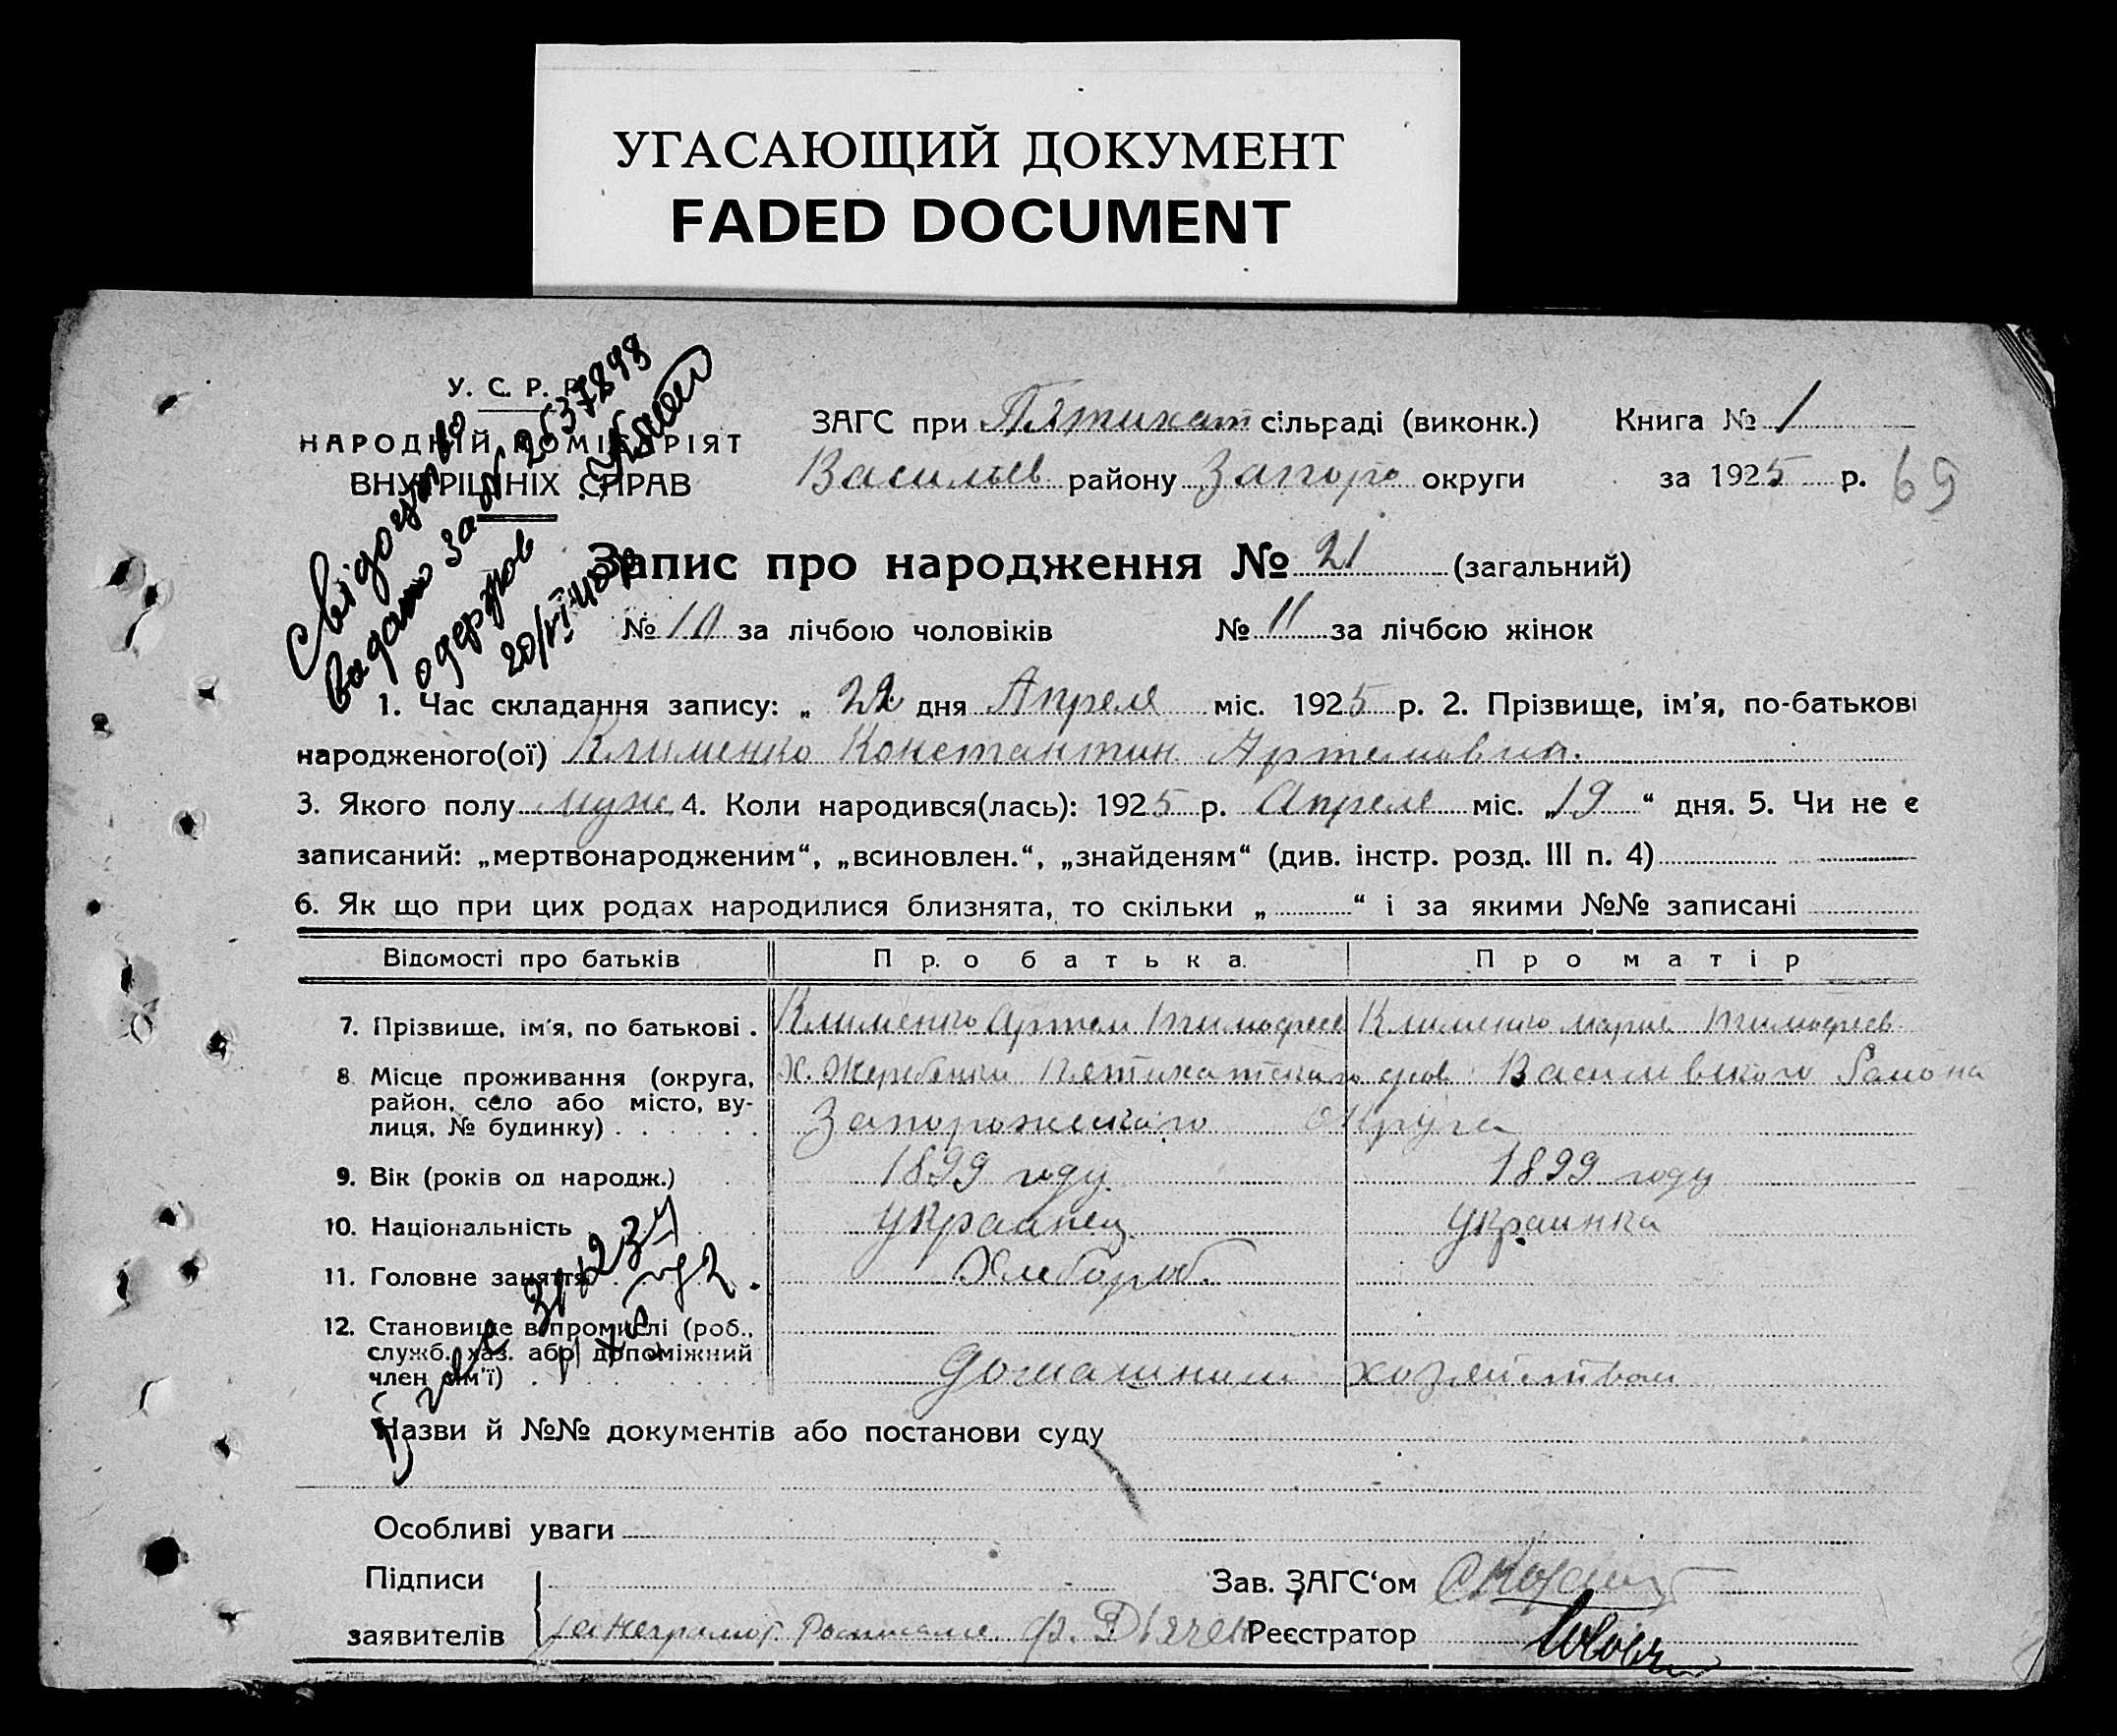 УГАСАЮЩИЙ ДОКУМЕНТ
FADED DOCUMENT
У. С. Р. Р.
НАРОДНІЙ КОМІСАРІЯТ
ВНУТРІШНІХ СПРАВ
Свідоцтво
видано за № 2537898
одержав
20/VI-40р
ЗАГС при Пятихат сільраді (виконк.) Книга № 1
Васильев району Запоро округи за 1925 р. 69
Запис про народження № 21 (загальний)
№ 10 за лічбою чоловіків № 11 за лічбою жінок
1. Час складання запису: „ 22 дня Апреля міс. 1925 р. 2. Прізвище, ім’я, по-батькові
народженого(ої) Клименко Константин Артемович.
3. Якого полу муж 4. Коли народився(лась): 1925 р. Апреля міс. „19“ дня. 5. Чи не є
записаний: „мертвонародженим“, „всиновлен.“, „знайденям“ (див. інстр. розд. III п. 4)
6. Як що при цих родах народилися близнята, то скільки „ “ і за якими №№ записані
Відомості про батьків Про батька Про матір
7. Прізвище, ім’я, по батькові . Клименко Артем Тимофеев Клименко Мария Тимофеев
8. Місце проживання (округа, район, село або місто, вулиця, № будинку) х. Жеребянки Пятихатского Василевского Района
Запорожского Округа
9. Вік (років од народж.) 1899 году 1899 году
10. Національність Украинец Украинка
11. Головне заняття Хлебороб
12. Становище в промислі (роб., служб. хаз. або допоміжний член сім’ї) домашним хозяйством
Назви й №№ документів або постанови суду
Особливі уваги
Підписи Зав. ЗАГС‘ом
заявителів за неграмот. Росписался Ф. Дьячен Реєстратор